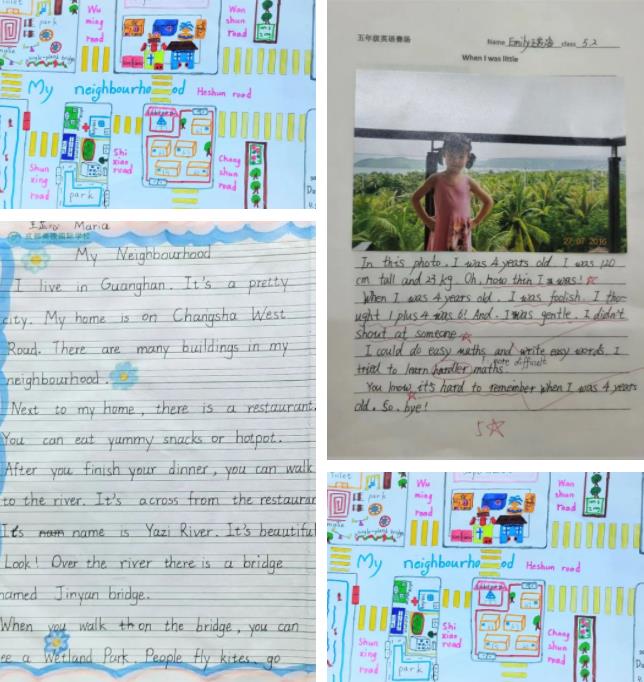 toilet
park
single-plank bridge
Wu
ming
road
Wan
shun
road
My neighbourhood Heshun road
Shun
xing
road
Shi
xiao
road
Chang
shun
road
park
王 Maria
My Neighbourhood
I live in Guanghan. It's a pretty
city. My home is on Changsha West
Road. There are many buildings in my
neighbourhood.
Next to my home, there is a restaurant.
You can eat yummy snacks or hotpot.
After you finish your dinner, you can walk
to the river. It's across from the restauran
It's name: Yazi River. It's beautiful
Look! Over the river there is a bridge
named Jinyan bridge.
When you walk on the bridge, you can
ee a Wetland Park. People fly kites, go
五年级英语赛场
Name Emily class 5.2
When I was little
27 07 2016
In this photo, I was 4 years old. I was 120
cm tall and 23 kg. Oh, how thin I was!
When I was 4 years old, I was foolish. I tho-
ught 1 plus 4 was 6! And I was gentle. I didn't
shout at someone.
I could do easy maths and write easy words. I
tried to learn harder maths. more difficult
You know, it's hard to remember when I was 4 years
old. So, bye!
5☆
toilet
park
single-plank bridge
Wu
ming
road
Wan
shun
road
My neighbourhood Heshun road
Shun
xing
road
Shi
xiao
road
Chang
shun
road
park